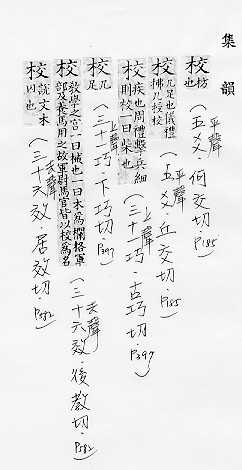 集韻
校 枋也（平聲 五爻·何交切·P185）
校 几足也儀禮拂几校校（平聲 五爻·丘交切·P185）
校 疾也周禮毄兵細則校一曰柴也（上聲 三十一巧·古巧切·P397）
校 几足（上聲 三十一巧·下巧切·P397）
校 教學之宮一曰械也一曰木為欄格軍部及養馬用之故軍尉馬官皆以校為名（去聲 三十六效·後教切·P582）
校 說文木囚也（去聲 三十六效·居效切·P582）